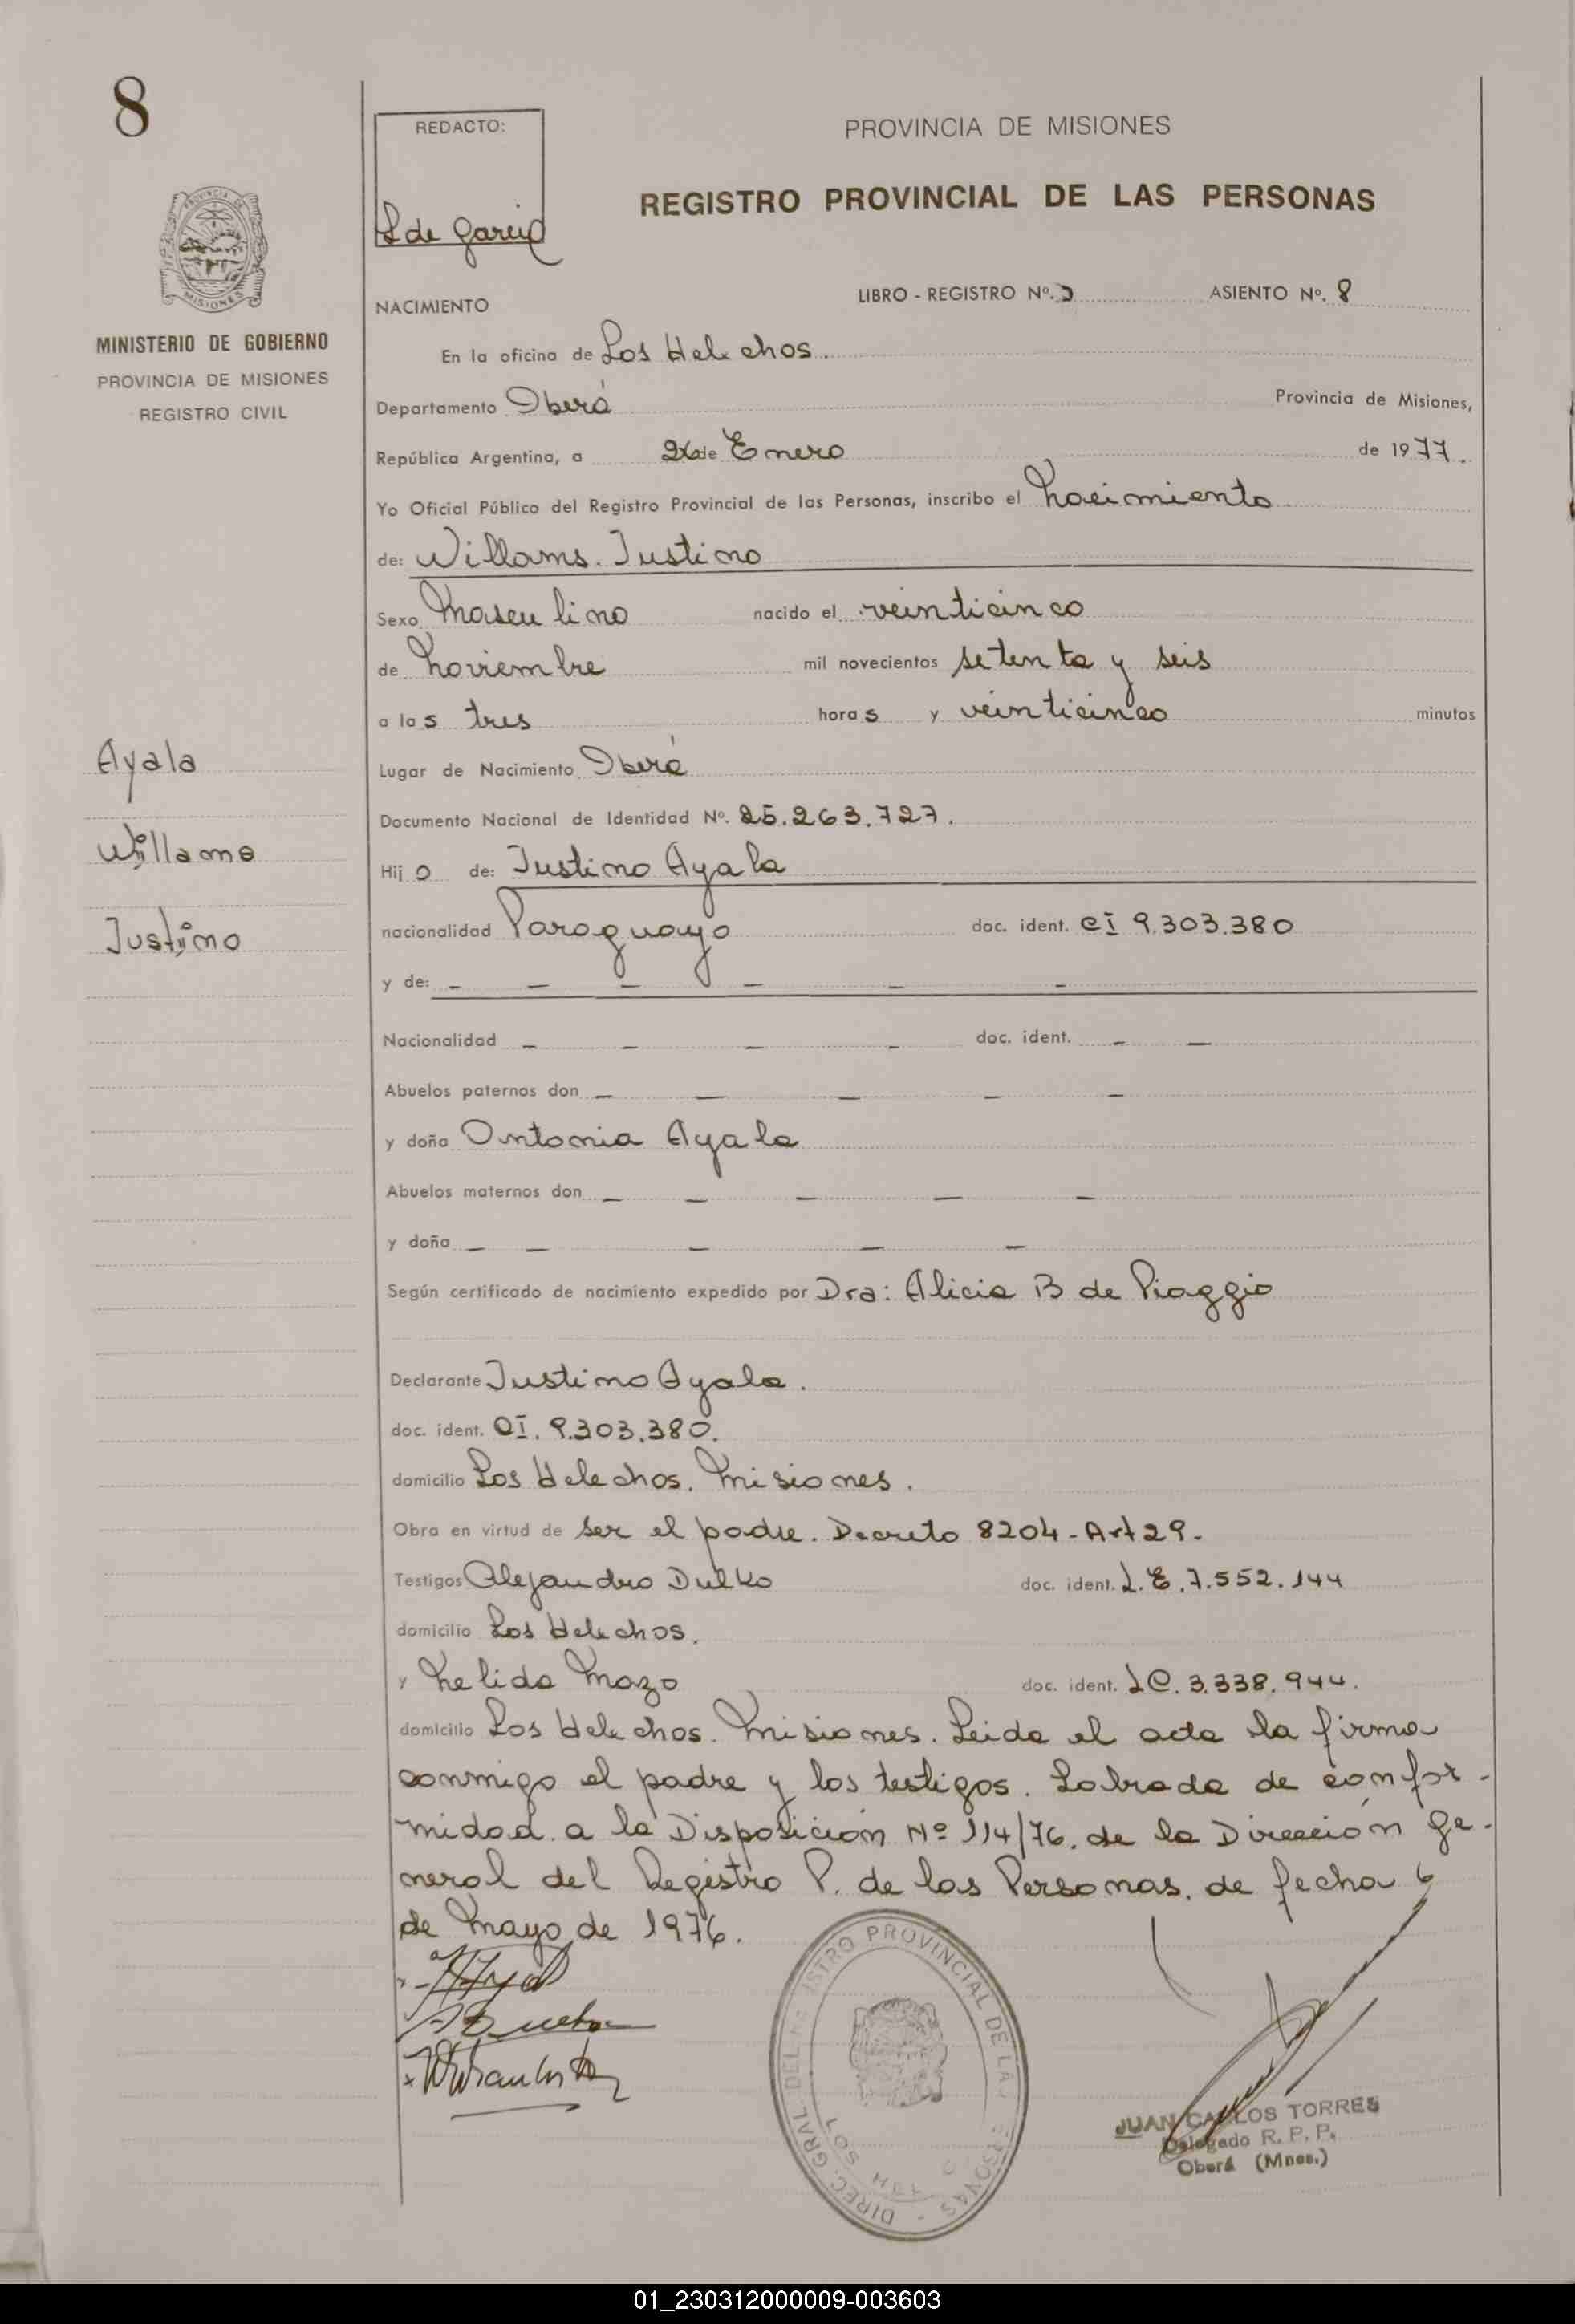 8
REDACTO:
PROVINCIA DE MISIONES
REGISTRO PROVINCIAL DE LAS PERSONAS
L de Garcia
PROVINCIA DE MISIONES
LIBRO - REGISTRO Nº. ASIENTO Nº. 8
NACIMIENTO
MINISTERIO DE GOBIERNO
PROVINCIA DE MISIONES
REGISTRO CIVIL
En la oficina de Los Helechos.
Departamento Oberá Provincia de Misiones,
República Argentina, a de Enero de 1977.
Yo Oficial Público del Registro Provincial de las Personas, inscribo el Nacimiento
de: Willams. Justino
Sexo Masculino nacido el veinticinco
de Noviembre mil novecientos setenta y seis
a las tres horas y veinticinco minutos
Ayala
Willams
Justino
Lugar de Nacimiento Oberá
Documento Nacional de Identidad Nº. 25.263.727.
Hijo de: Justino Ayala
nacionalidad Paraguayo doc. ident. CI 9.303.380
y de: - - - - - -
Nacionalidad - - - - doc. ident. - -
Abuelos paternos don - - - - -
y doña Antonia Ayala
Abuelos maternos don - - - - -
y doña - - - - -
Según certificado de nacimiento expedido por Dra: Alicia B de Piaggio
Declarante Justino Ayala.
doc. ident. CI. 9.303.380.
domicilio Los Helechos. Misiones.
Obra en virtud de ser el padre. Decreto 8204 - Art 29.
Testigos Alejandro Dulko doc. ident. L.E. 7.552.144
domicilio Los Helechos.
y Nelida Mazo doc. ident. LC. 3.338.944.
domicilio Los Helechos. Misiones. Leida el acta la firma
conmigo el padre y los testigos. Labrada de confor-
midad a la Disposición Nº 114/76. de la Dirección Ge-
neral del Registro P. de las Personas. de fecha 6
de Mayo de 1976.
DIREC. GRAL. DEL REGISTRO PROVINCIAL DE LAS PERSONAS -
JUAN CARLOS TORRES
Delegado R. P. P.
Oberá (Mnes.)
01_230312000009-003603